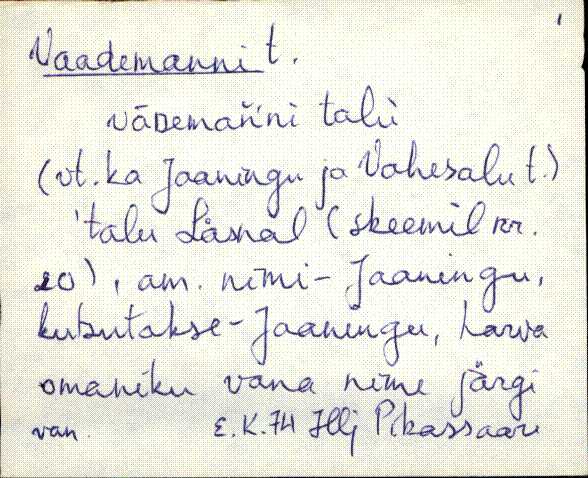 Vaademanni t.
vāDemańńi talu
(vt. ka Jaaningu ja Vahesalu t.)
talu Låsnal (skeemil nr.
20), am. nimi - Jaaningu,
kutsutakse - Jaaningu, harva
omaniku vana nime järgi
van. E.K.74 Illj Pikassaare